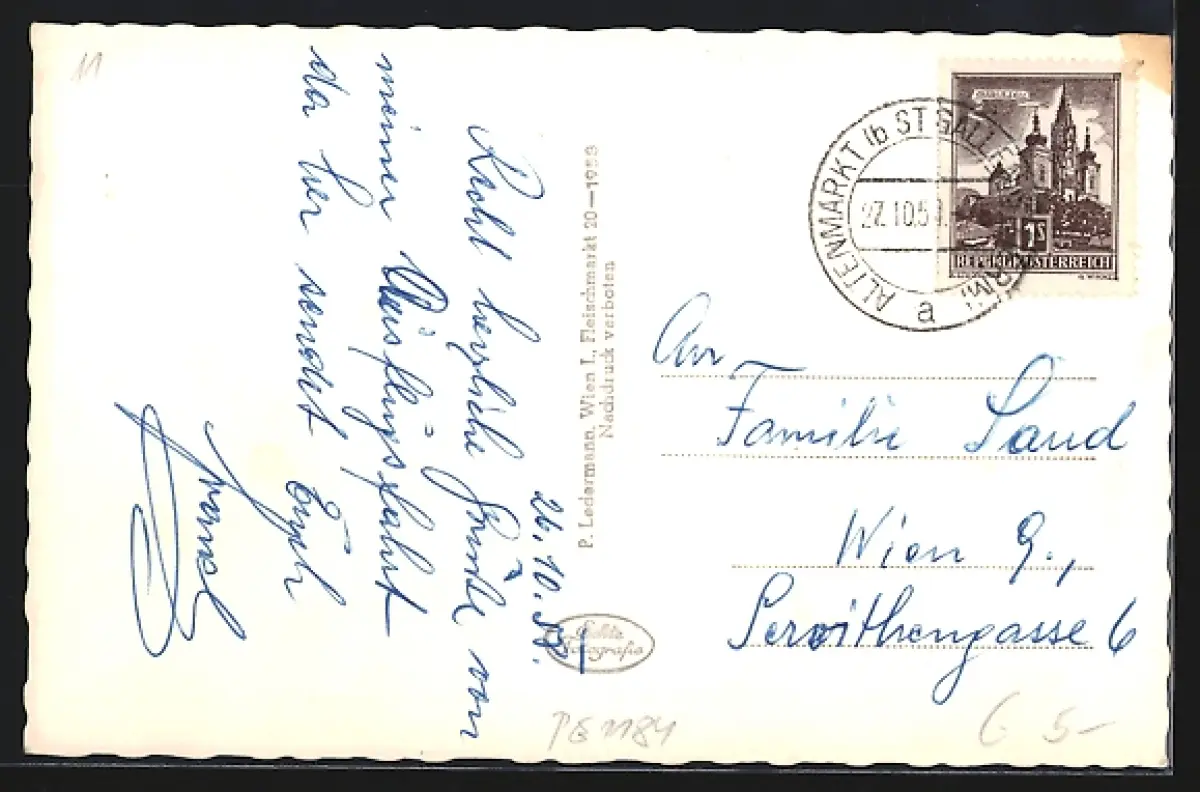 11
26. 10. 58.
Recht herzliche Grüße von
meiner Ausflugsfahrt
da her sendet Euch
P. Ledermann, Wien I., Fleischmarkt 20—1953
Nachdruck verboten
Echte
Fotografie
ALTENMARKT (b ST GALL
27.10.5
a
1 S
REPUBLIK ÖSTERREICH
An
Familie Sand
Wien 9.,
Servithengasse 6
PG 1184
5-